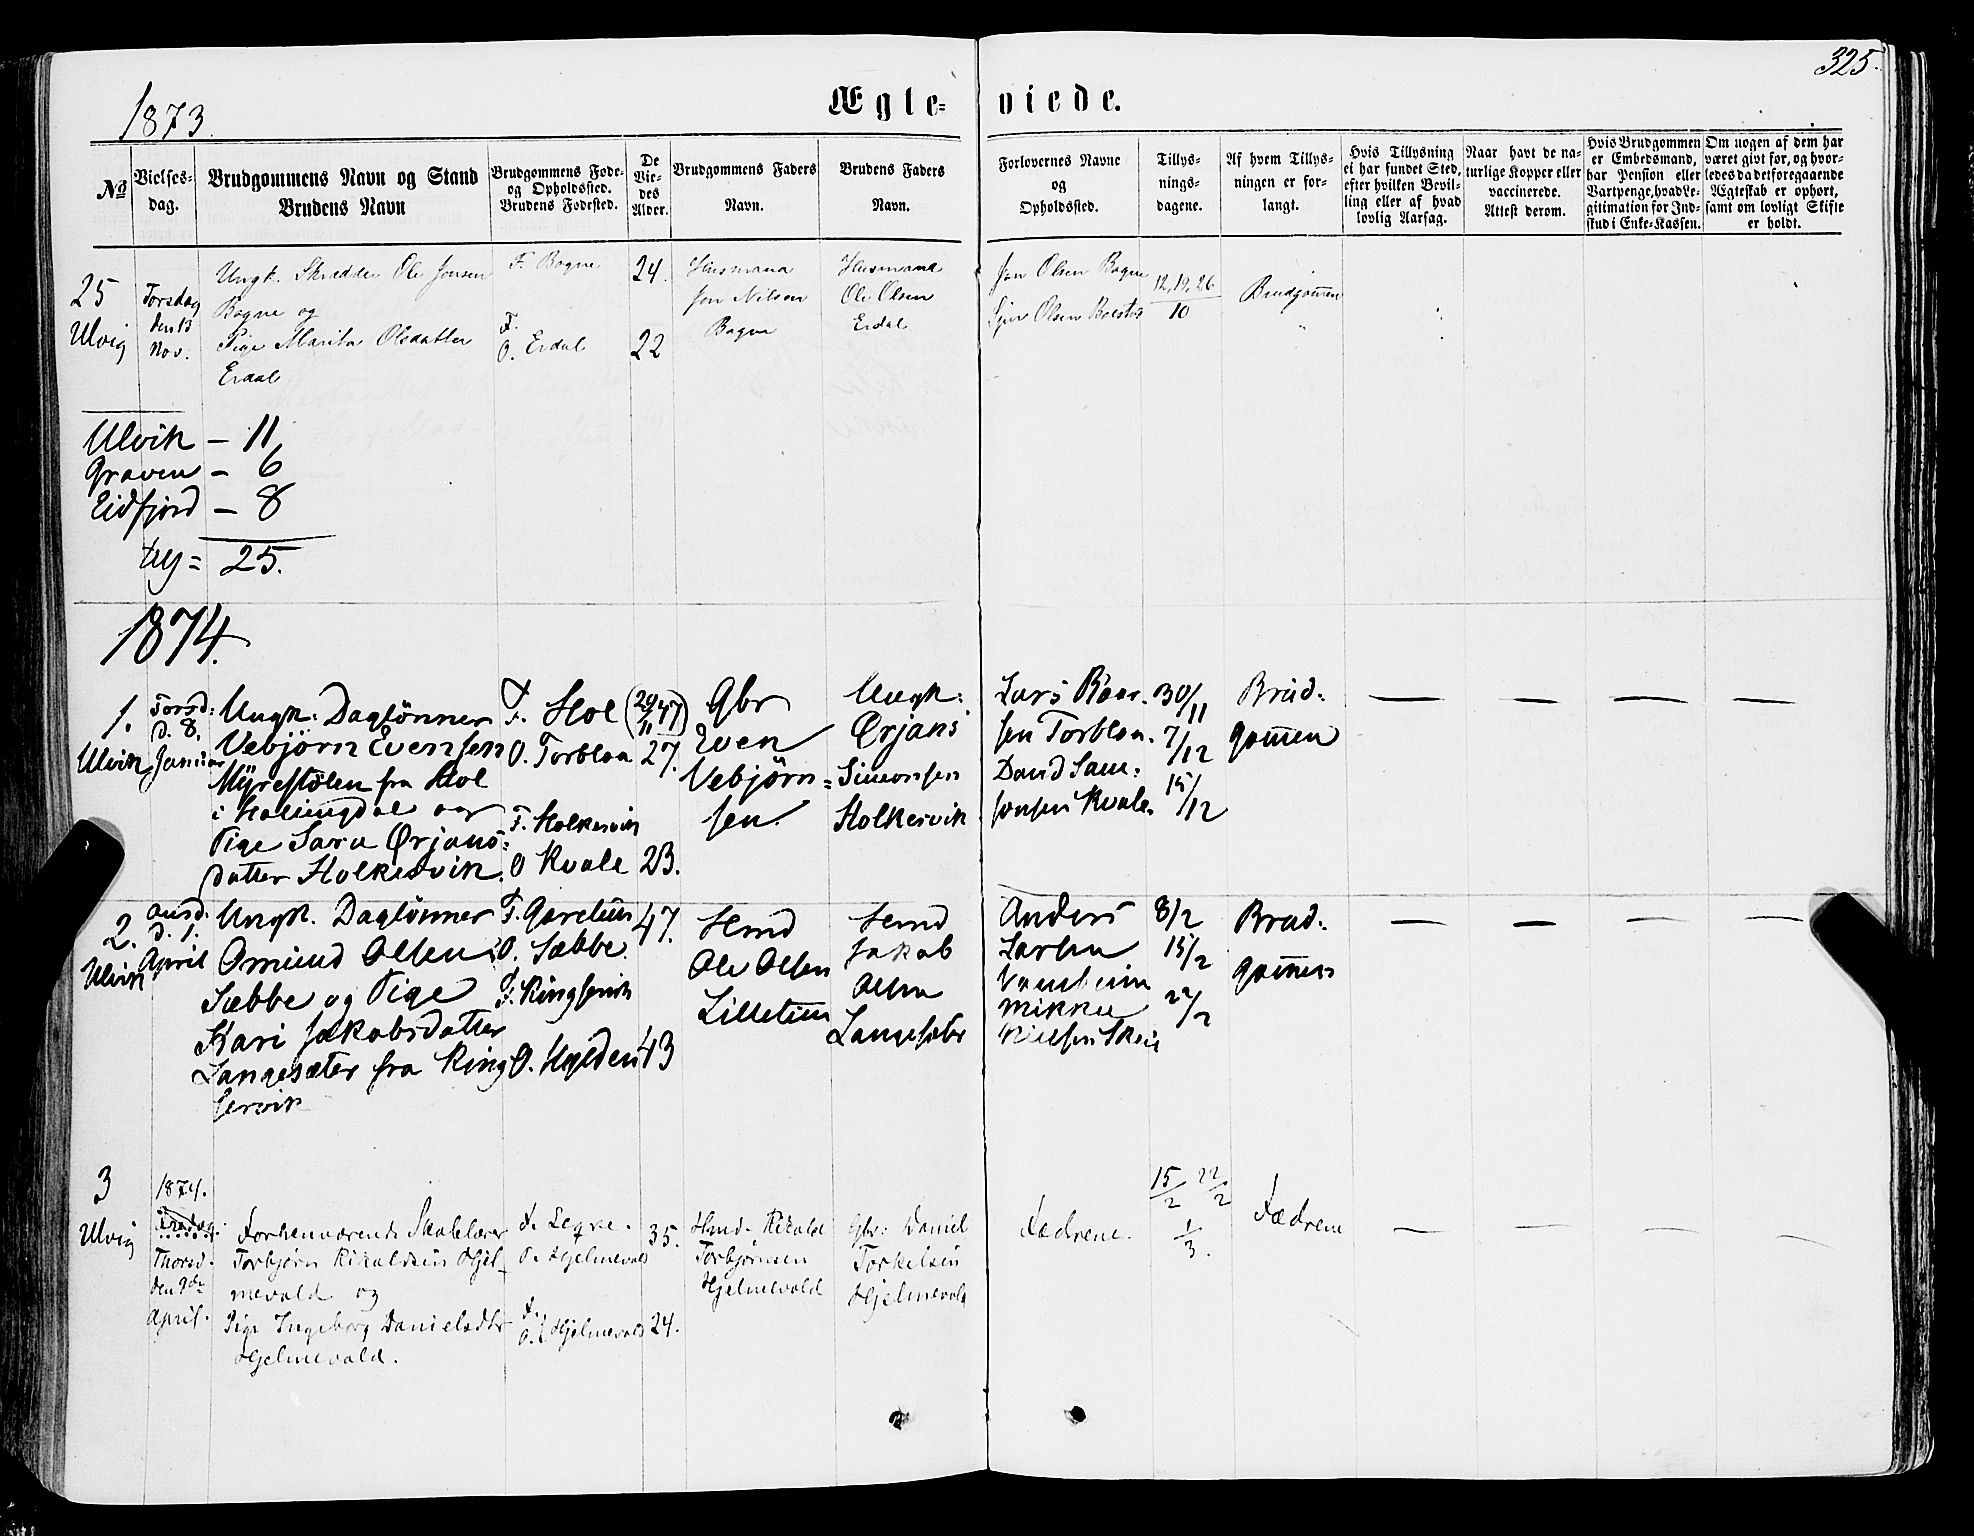 325.
1873.
Ægte- viede.
No
Vielses-
dag.
Brudgommens Navn og Stand
Brudens Navn
Brudgommens Føde-
og Opholdssted.
Brudens Fødested.
De
Vie-
des
Alder.
Brudgommens Faders
Navn.
Brudens Faders
Navn.
Forlovernes Navne
og
Opholdssted.
Tillys-
nings-
dagene.
Af hvem Tillys-
ningen er for-
langt.
Hvis Tillysning
ei har fundet Sted,
efter hvilken Bevil-
ling eller af hvad
lovlig Aarsag.
Naar havt de na-
turlige Kopper eller
vaccinerede.
Attest derom.
Hvis Brudgommen
er Embedsmand,
har Pension eller
Vartpenge, hvad Le-
gitimation for Ind-
skud i Enke-Kassen.
Om nogen af dem har
været givt før, og hvor-
ledes da det foregaaende
Ægteskab er ophørt,
samt om lovligt Skifte
er holdt.
25
Ulvig
Torsdag
den 13
Nov.
Ungk. Skrædder Ole Jonsen
Bagne og
Pige Marita Olsdatter
Erdal
F. Bagne
F.
O. Erdal
24.
22
Husmand
Jon Nilsen
Bagne
Husmand
Ole Olsen
Erdal
Jon Olsen Bagne
Olsen
12, 19, 26
10
Brudgommen
Ulvik – 11
Graven – 6
Eidfjord – 8
25.
1874.
1.
Ulvik
Torsd:
d. 8.
Januar
Ungk: Daglønner
Vebjørn Evensen
Myrestølen fra Hol
i Hallingdal og
Pige Sara Ørjans-
datter Holkesvik.
F. Hol
O. Torblaa
F. Holkesvik
O Kvale
(29/11 47)
27.
23.
Gbr
Even
Vebjørn-
sen.
Ungk:
Ørjans
Simonsen
Holkesvik
Lars
sen Torblaa.
David Sam-
sonsen Kvale.
30/11
7/12
15/12
Brud-
gommen
— — — —
2.
Ulvik
Onsd.
d. 1.
April
Ungk. Daglønner
Omund Olsen
Sæbbe og Pige
Kari Jakobsdatter
Langesæter fra Ring
servik
F. Garetun
O. Sæbbe.
F. Ringservik
O. Hylden
47.
43
Hmd
Ole Olsen
Lilletun
Hmd
Jakob
Olsen
Anders
Larsen
Mikkel
Nielsen Skeie
8/2
15/2
22/2
Brud-
gommen
— — — —
3
Ulvig
1874.
Thorsd.
den 9de
April.
Forhenværende Skolelærer
Torbjørn Rikoldsen Hjel-
mevold og
Pige Ingeborg Danielsdtr
Hjelmevold.
F. Legre.
O. Hjelmevold
F.
O. Hjelmevold
35.
24.
Hmd. Rikold
Torbjørnsen
Hjelmevold
Gbr: Daniel
Torkelsen
Hjelmevold
Fædrene.
15/2 22/2
1/3.
Fædrene
— — — —